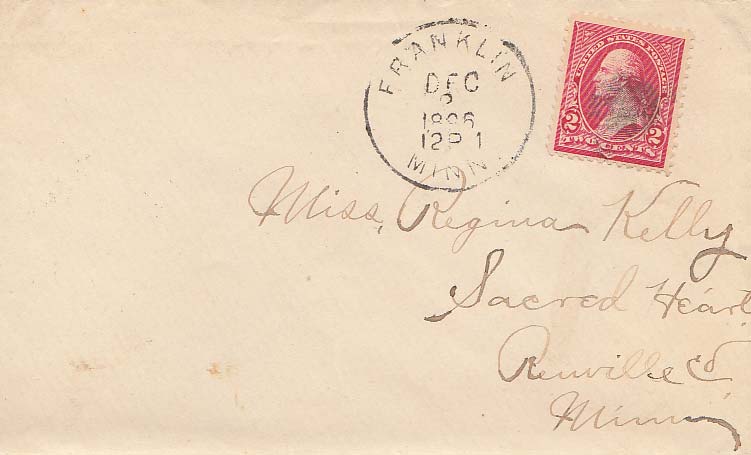 FRANKLIN
DEC
2
1896
12P 1
MINN.
UNITED STATES POSTAGE
2 2
TWO CENTS
Miss, Regina Kelly
Sacred Heart
Renville Co
Minn